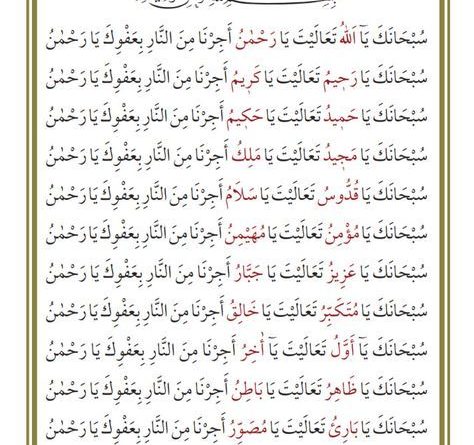 سُبْحَانَكَ يَٓا اَللّٰهُ تَعَالَيْتَ يَا رَحْمٰنُ أَجِرْنَا مِنَ النَّارِ بِعَفْوِكَ يَا رَحْمٰنُ
سُبْحَانَكَ يَا رَحِيمُ تَعَالَيْتَ يَا كَرِيمُ أَجِرْنَا مِنَ النَّارِ بِعَفْوِكَ يَا رَحْمٰنُ
سُبْحَانَكَ يَا حَمِيدُ تَعَالَيْتَ يَا حَكِيمُ أَجِرْنَا مِنَ النَّارِ بِعَفْوِكَ يَا رَحْمٰنُ
سُبْحَانَكَ يَا مَجِيدُ تَعَالَيْتَ يَا مَلِكُ أَجِرْنَا مِنَ النَّارِ بِعَفْوِكَ يَا رَحْمٰنُ
سُبْحَانَكَ يَا قُدُّوسُ تَعَالَيْتَ يَا سَلَامُ أَجِرْنَا مِنَ النَّارِ بِعَفْوِكَ يَا رَحْمٰنُ
سُبْحَانَكَ يَا مُؤْمِنُ تَعَالَيْتَ يَا مُهَيْمِنُ أَجِرْنَا مِنَ النَّارِ بِعَفْوِكَ يَا رَحْمٰنُ
سُبْحَانَكَ يَا عَزِيزُ تَعَالَيْتَ يَا جَبَّارُ أَجِرْنَا مِنَ النَّارِ بِعَفْوِكَ يَا رَحْمٰنُ
سُبْحَانَكَ يَا مُتَكَبِّرُ تَعَالَيْتَ يَا خَالِقُ أَجِرْنَا مِنَ النَّارِ بِعَفْوِكَ يَا رَحْمٰنُ
سُبْحَانَكَ يَٓا أَوَّلُ تَعَالَيْتَ يَٓا اٰخِرُ أَجِرْنَا مِنَ النَّارِ بِعَفْوِكَ يَا رَحْمٰنُ
سُبْحَانَكَ يَا ظَاهِرُ تَعَالَيْتَ يَا بَاطِنُ أَجِرْنَا مِنَ النَّارِ بِعَفْوِكَ يَا رَحْمٰنُ
سُبْحَانَكَ يَا بَارِئُ تَعَالَيْتَ يَا مُصَوِّرُ أَجِرْنَا مِنَ النَّارِ بِعَفْوِكَ يَا رَحْمٰنُ